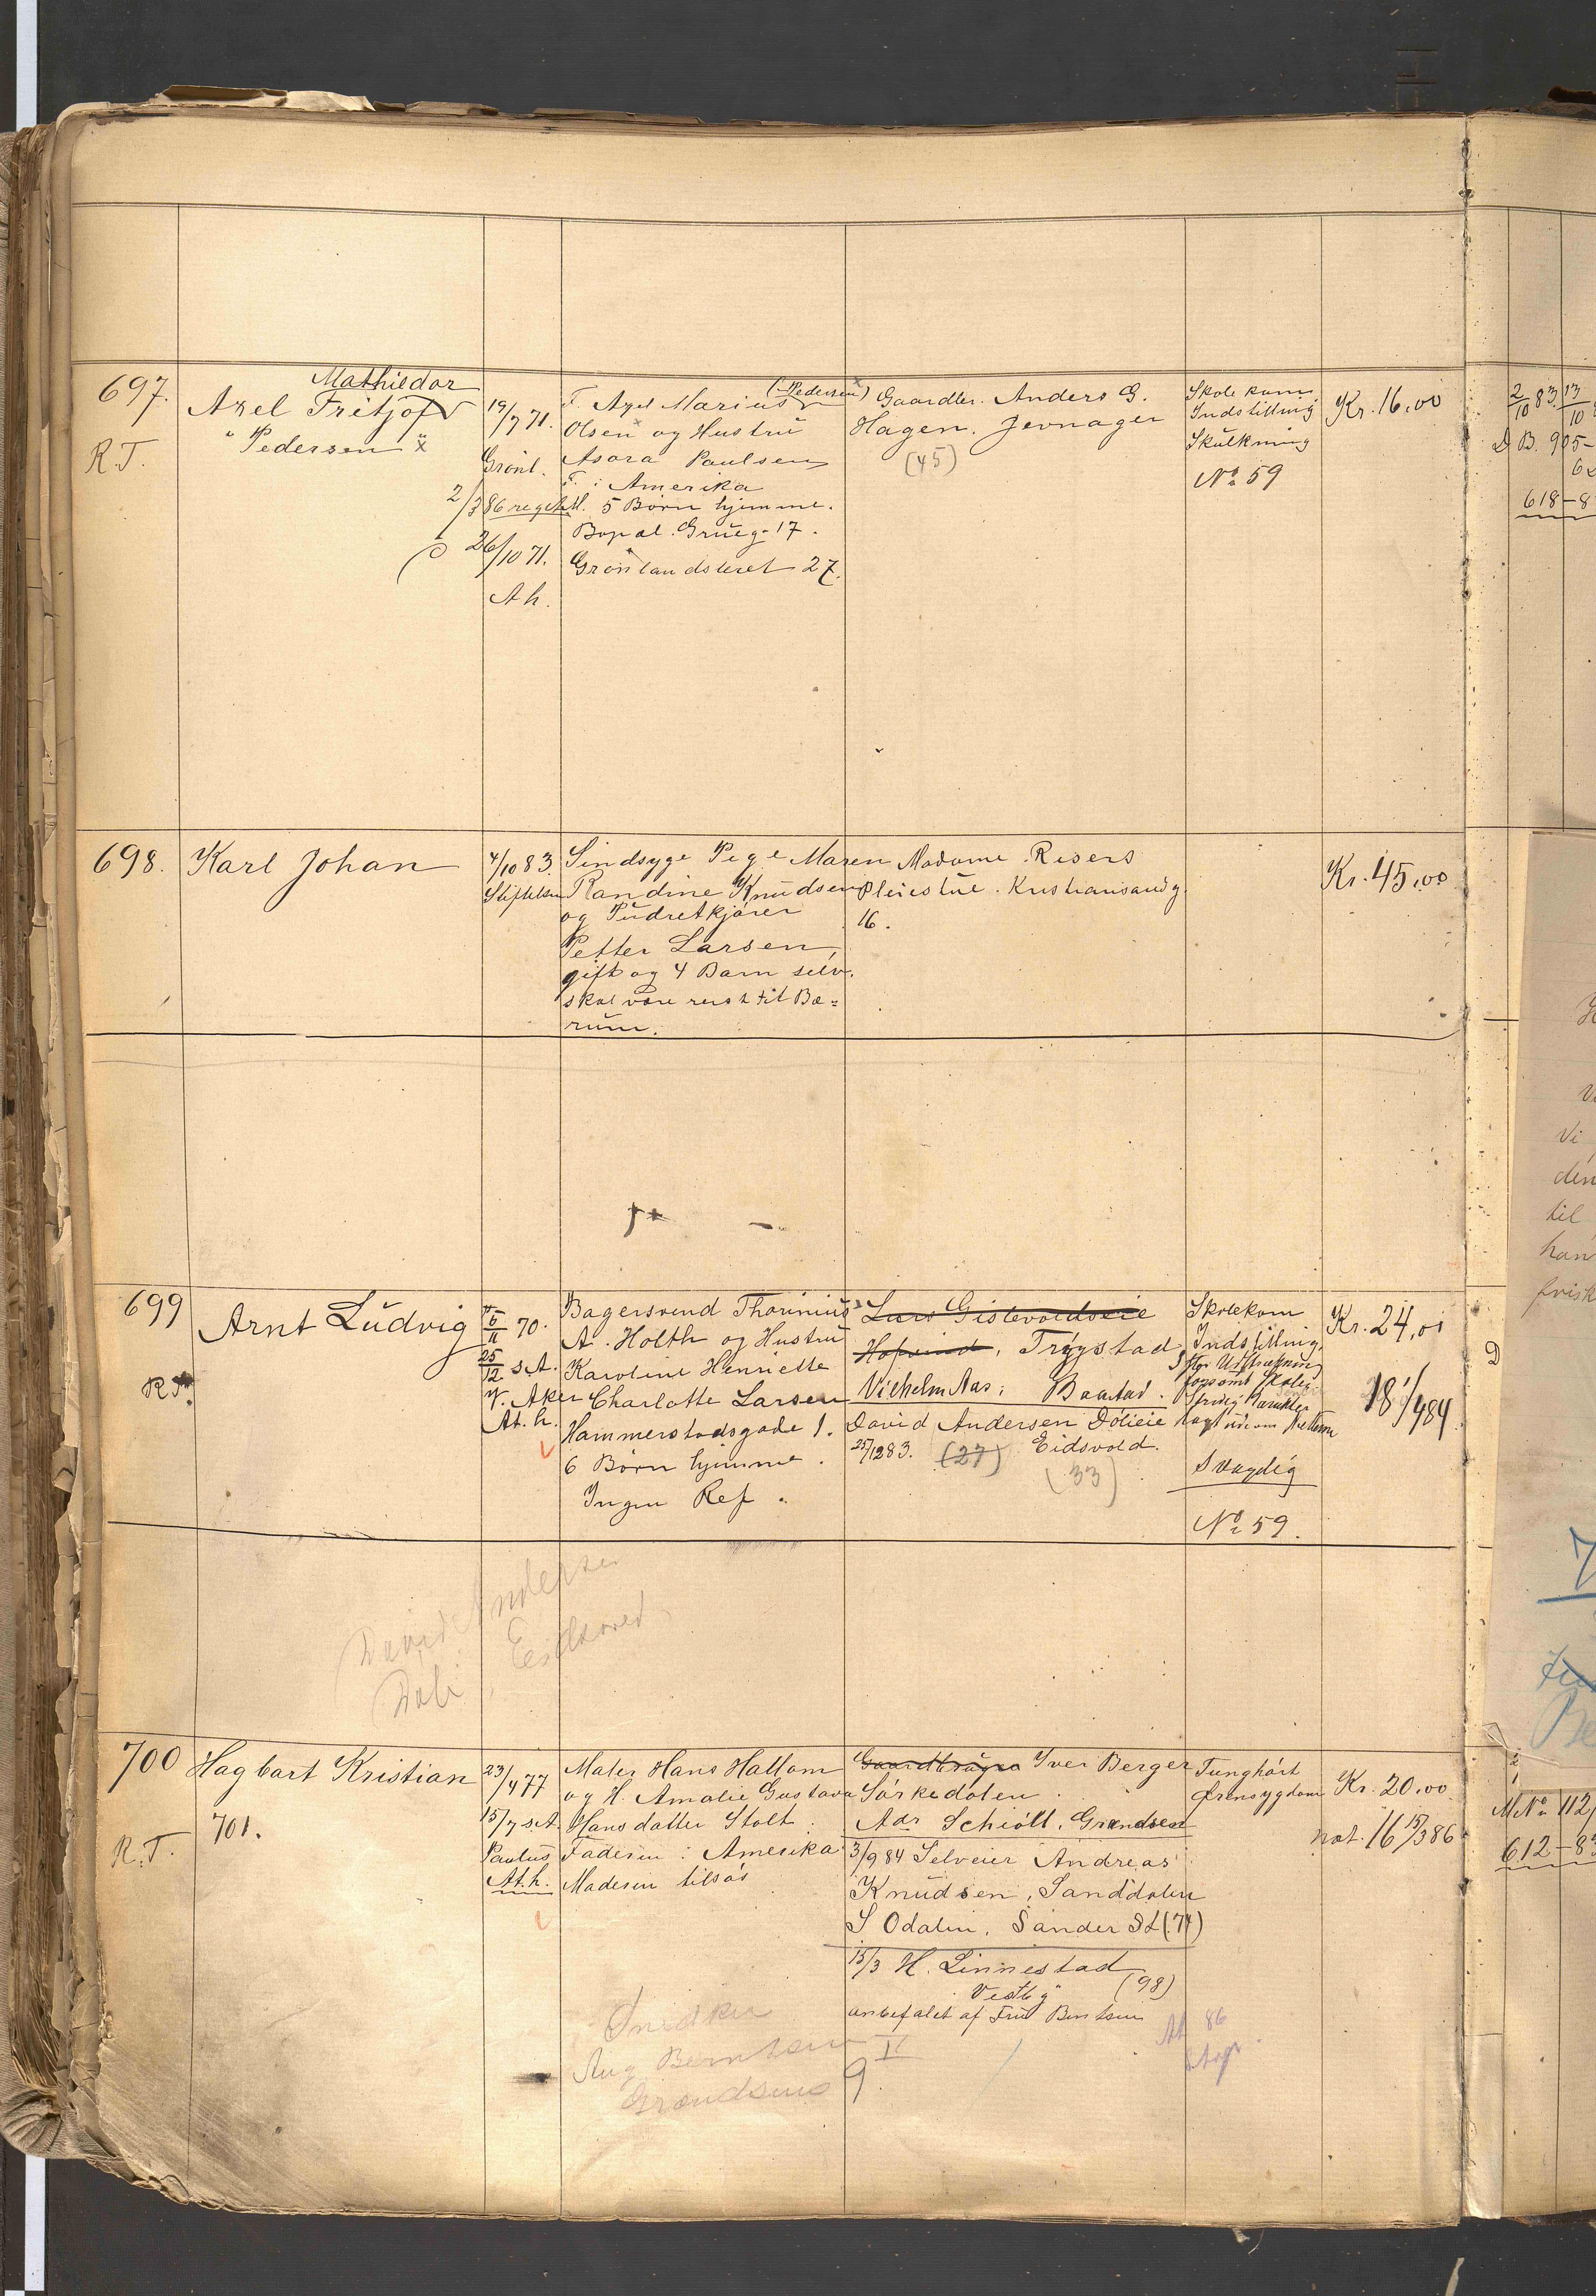 697.
R.T.
Mathildar
Axel Fritjof
" Pedersen "
19/7 71.
Grönl.
2/3 86
26/10 71.
Ah.
F. Axel Marius (Pedersen)
Olsen og Hustru
Asora Paulsen
F. i Amerika
M. 5 Börn hjemme.
Bopæl. Grüg. 17.
Grönlandsleret 27.
Gaardbr. Anders G.
Hagen. Jevnager
(45)
Skolekom
Indstilling
Skulkning
No 59
Kr. 16,00
698.
Karl Johan
4/10 83.
Stiftelsen
Sindsyge Pige Maren
Randine Knudsen
og Pudretkjörer
Petter Larsen,
gift og 4 Barn selv.
skal være reist til Bæ=
rum.
Madame Risers
Pleiestue. Kristiansandg.
16.
Kr. 45,00
699
R.T.
Arnt Ludvig
70.
25/12 s.A.
V. Aker
At. h.
Bagersvend Thorinius
A. Holth og Hustru
Karoline Henriette
Charlotte Larsen
Hammerstadsgade 1.
6 Börn hjemme.
Ingen Ref.
Lars Gislevoldseie
Hofvind, Trygstad
Vilhelm Aas, Baastad.
David Andersen Dölieie
25/12 83. (27) Eidsvold.
(33)
Skolekom
Indstilling,
forsömt Skolen
Svagelig
No 59.
Kr. 24,00
18 1/4 84
David Andersen
Döli, Eidsvold
700
R.T.
Hagbart Kristian
701.
23/4 77
15/7 s.A.
Paulus
At.h.
Maler Hans Hallam
og H. Amalie Gustava
Hansdatter Stolt.
Faderen i Amerika
Moderen tilsös
Gaardbruger Iver Berger
Sörkedalen.
Adr Schiöll, Grændsen
3/9 84 Selveier Andreas
Knudsen, Sanddalen
S Odalen, Sander St (74)
15/3 H. Linnestad
Vestby (98)
anbefalet af Fru Berntsen
Tunghört
Ørensygdom
Kr. 20,00
nat. 16 15/3 86
Snedker
Aug Berntsen
Grændsens 9.
II
86
2/10 83
D B. 905-
618-8
D
M No 112/
612-83
Vi
den
til
han
frisk